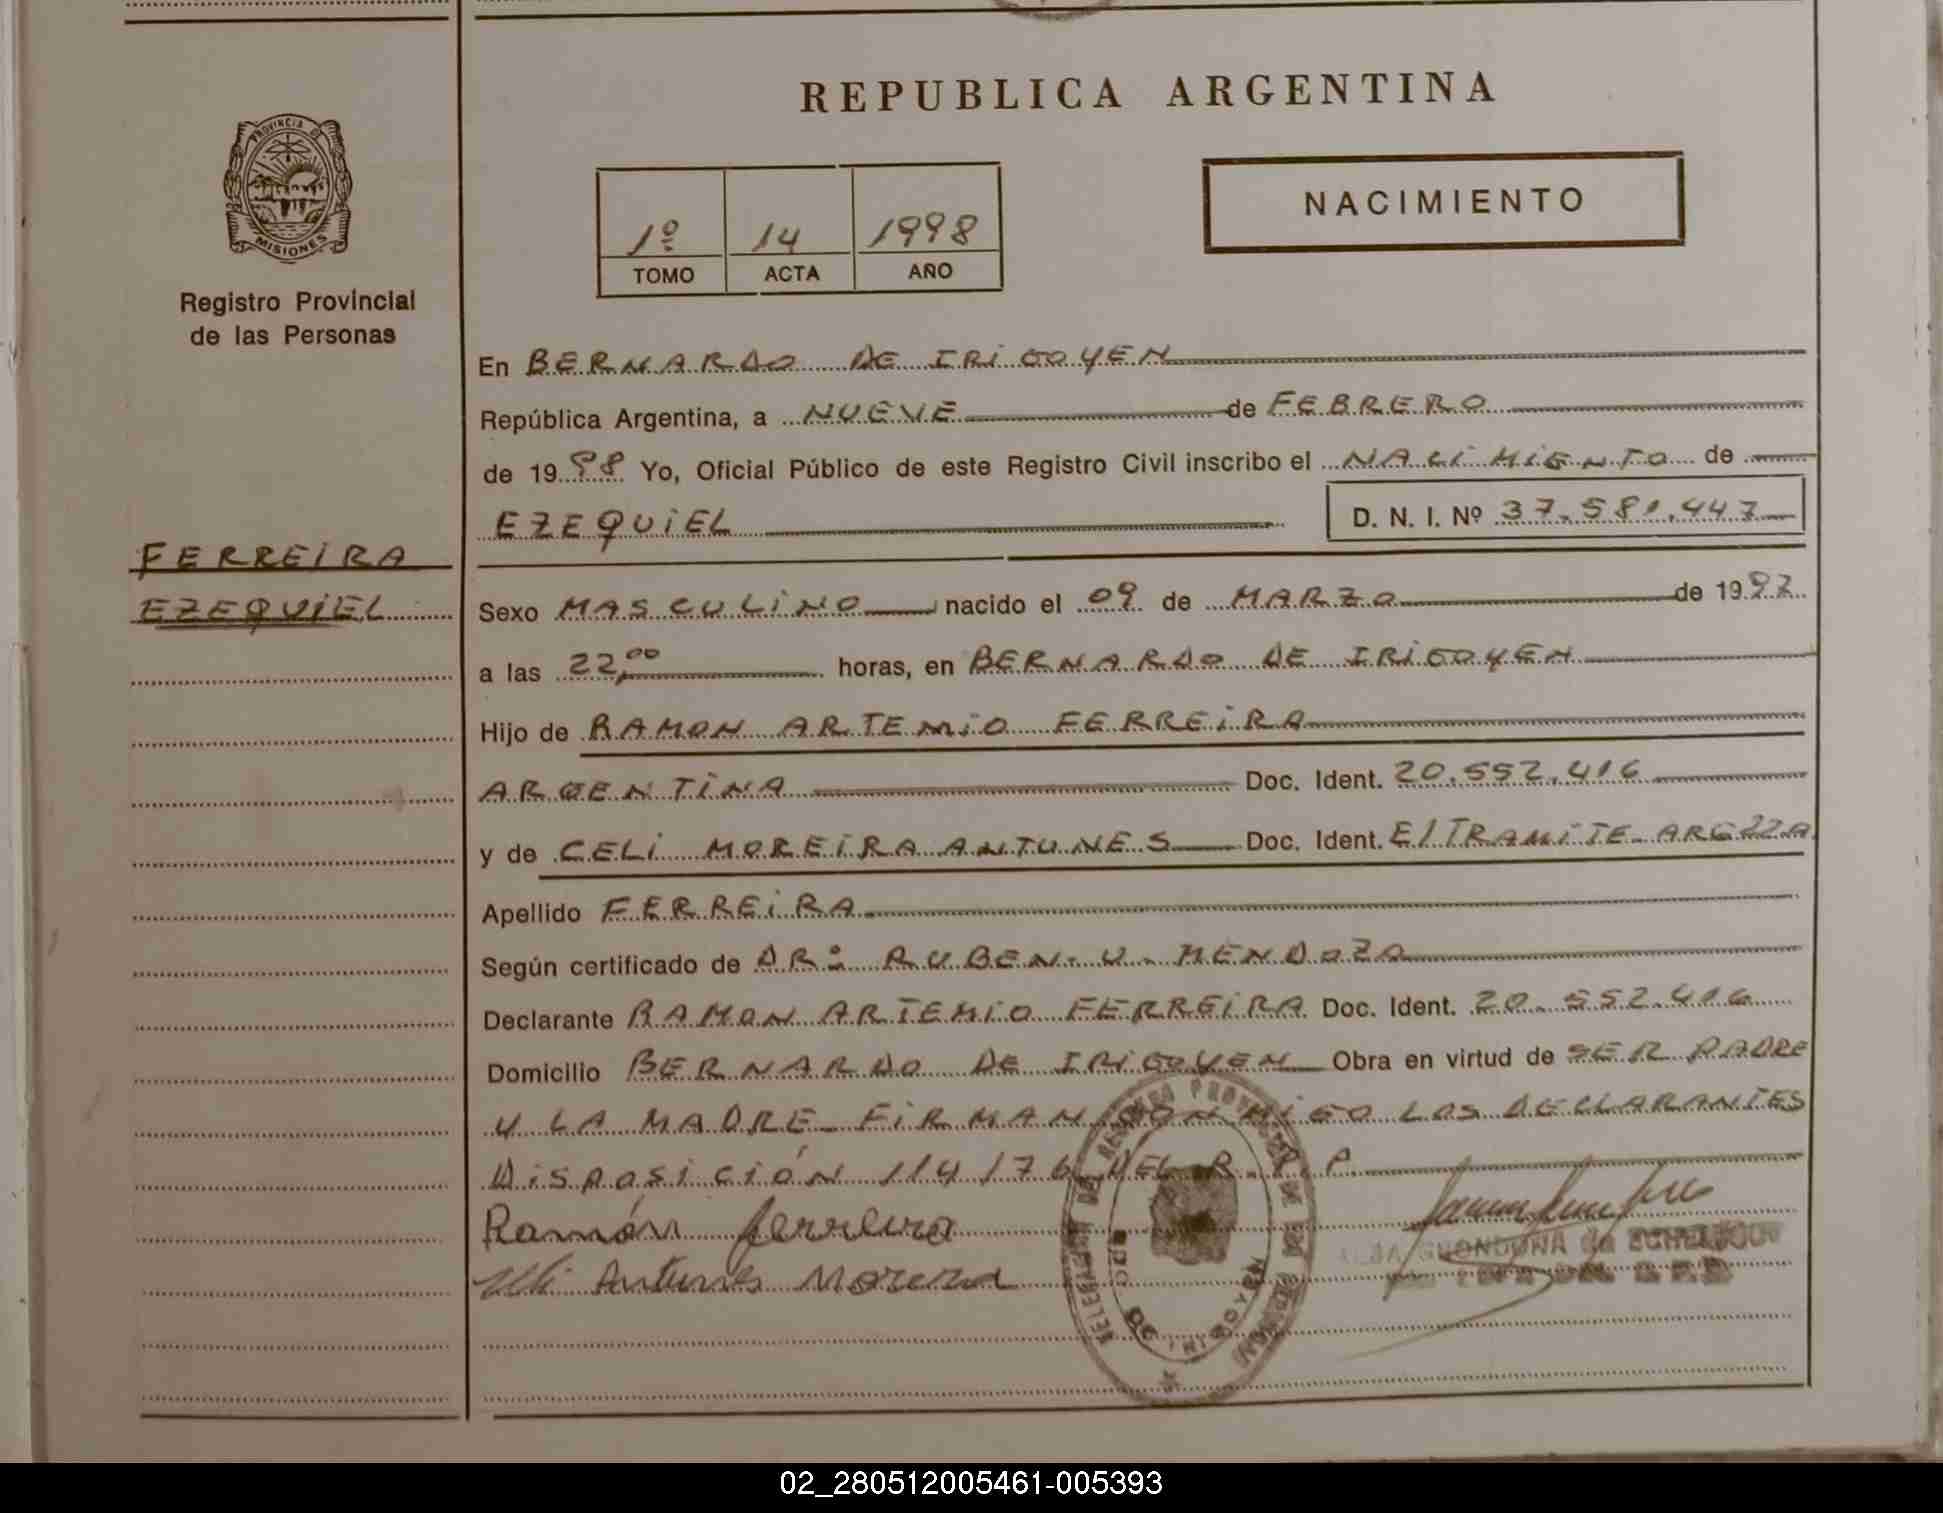 REPUBLICA ARGENTINA
PROVINCIA DE
MISIONES
Registro Provincial
de las Personas
NACIMIENTO
1º 14 1998
TOMO ACTA AÑO
En BERNARDO DE IRIGOYEN
República Argentina, a NUEVE de FEBRERO
de 1998 Yo, Oficial Público de este Registro Civil inscribo el NACIMIENTO de
EZEQUIEL D. N. I. Nº 37.581.447
FERREIRA
EZEQUIEL
Sexo MASCULINO nacido el 09 de MARZO de 1997
a las 22,00 horas, en BERNARDO DE IRIGOYEN
Hijo de RAMON ARTEMIO FERREIRA
ARGENTINA Doc. Ident. 20.552.416
y de CELI MOREIRA ANTUNES Doc. Ident. E/TRAMITE-
Apellido FERREIRA
Según certificado de DR: RUBEN. U. MENDOZA
Declarante RAMON ARTEMIO FERREIRA Doc. Ident. 20.552.416
Domicilio BERNARDO DE IRIGOYEN Obra en virtud de SER PADRE
Y LA MADRE - FIRMAN CONMIGO LOS DECLARANTES
DISPOSICIÓN 114/76 DEL R.P.P.
Ramón ferreira
Antunes Moreira
02_280512005461-005393